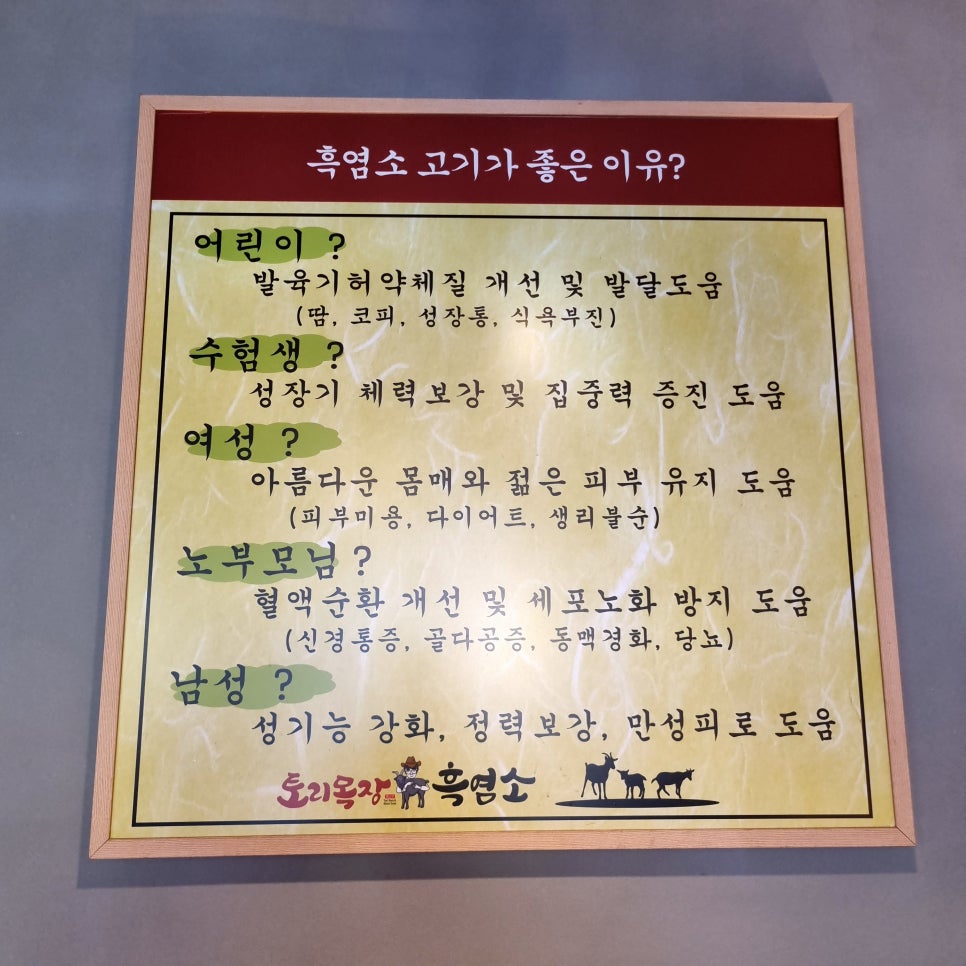 흑염소 고기가 좋은 이유?
어린이 ?
발육기허약체질 개선 및 발달도움
(땀, 코피, 성장통, 식욕부진)
수험생 ?
성장기 체력보강 및 집중력 증진 도움
여성 ?
아름다운 몸매와 젊은 피부 유지 도움
(피부미용, 다이어트, 생리불순)
노부모님 ?
혈액순환 개선 및 세포노화 방지 도움
(신경통증, 골다공증, 동맥경화, 당뇨)
남성 ?
성기능 강화, 정력보강, 만성피로 도움
토리목장 흑염소